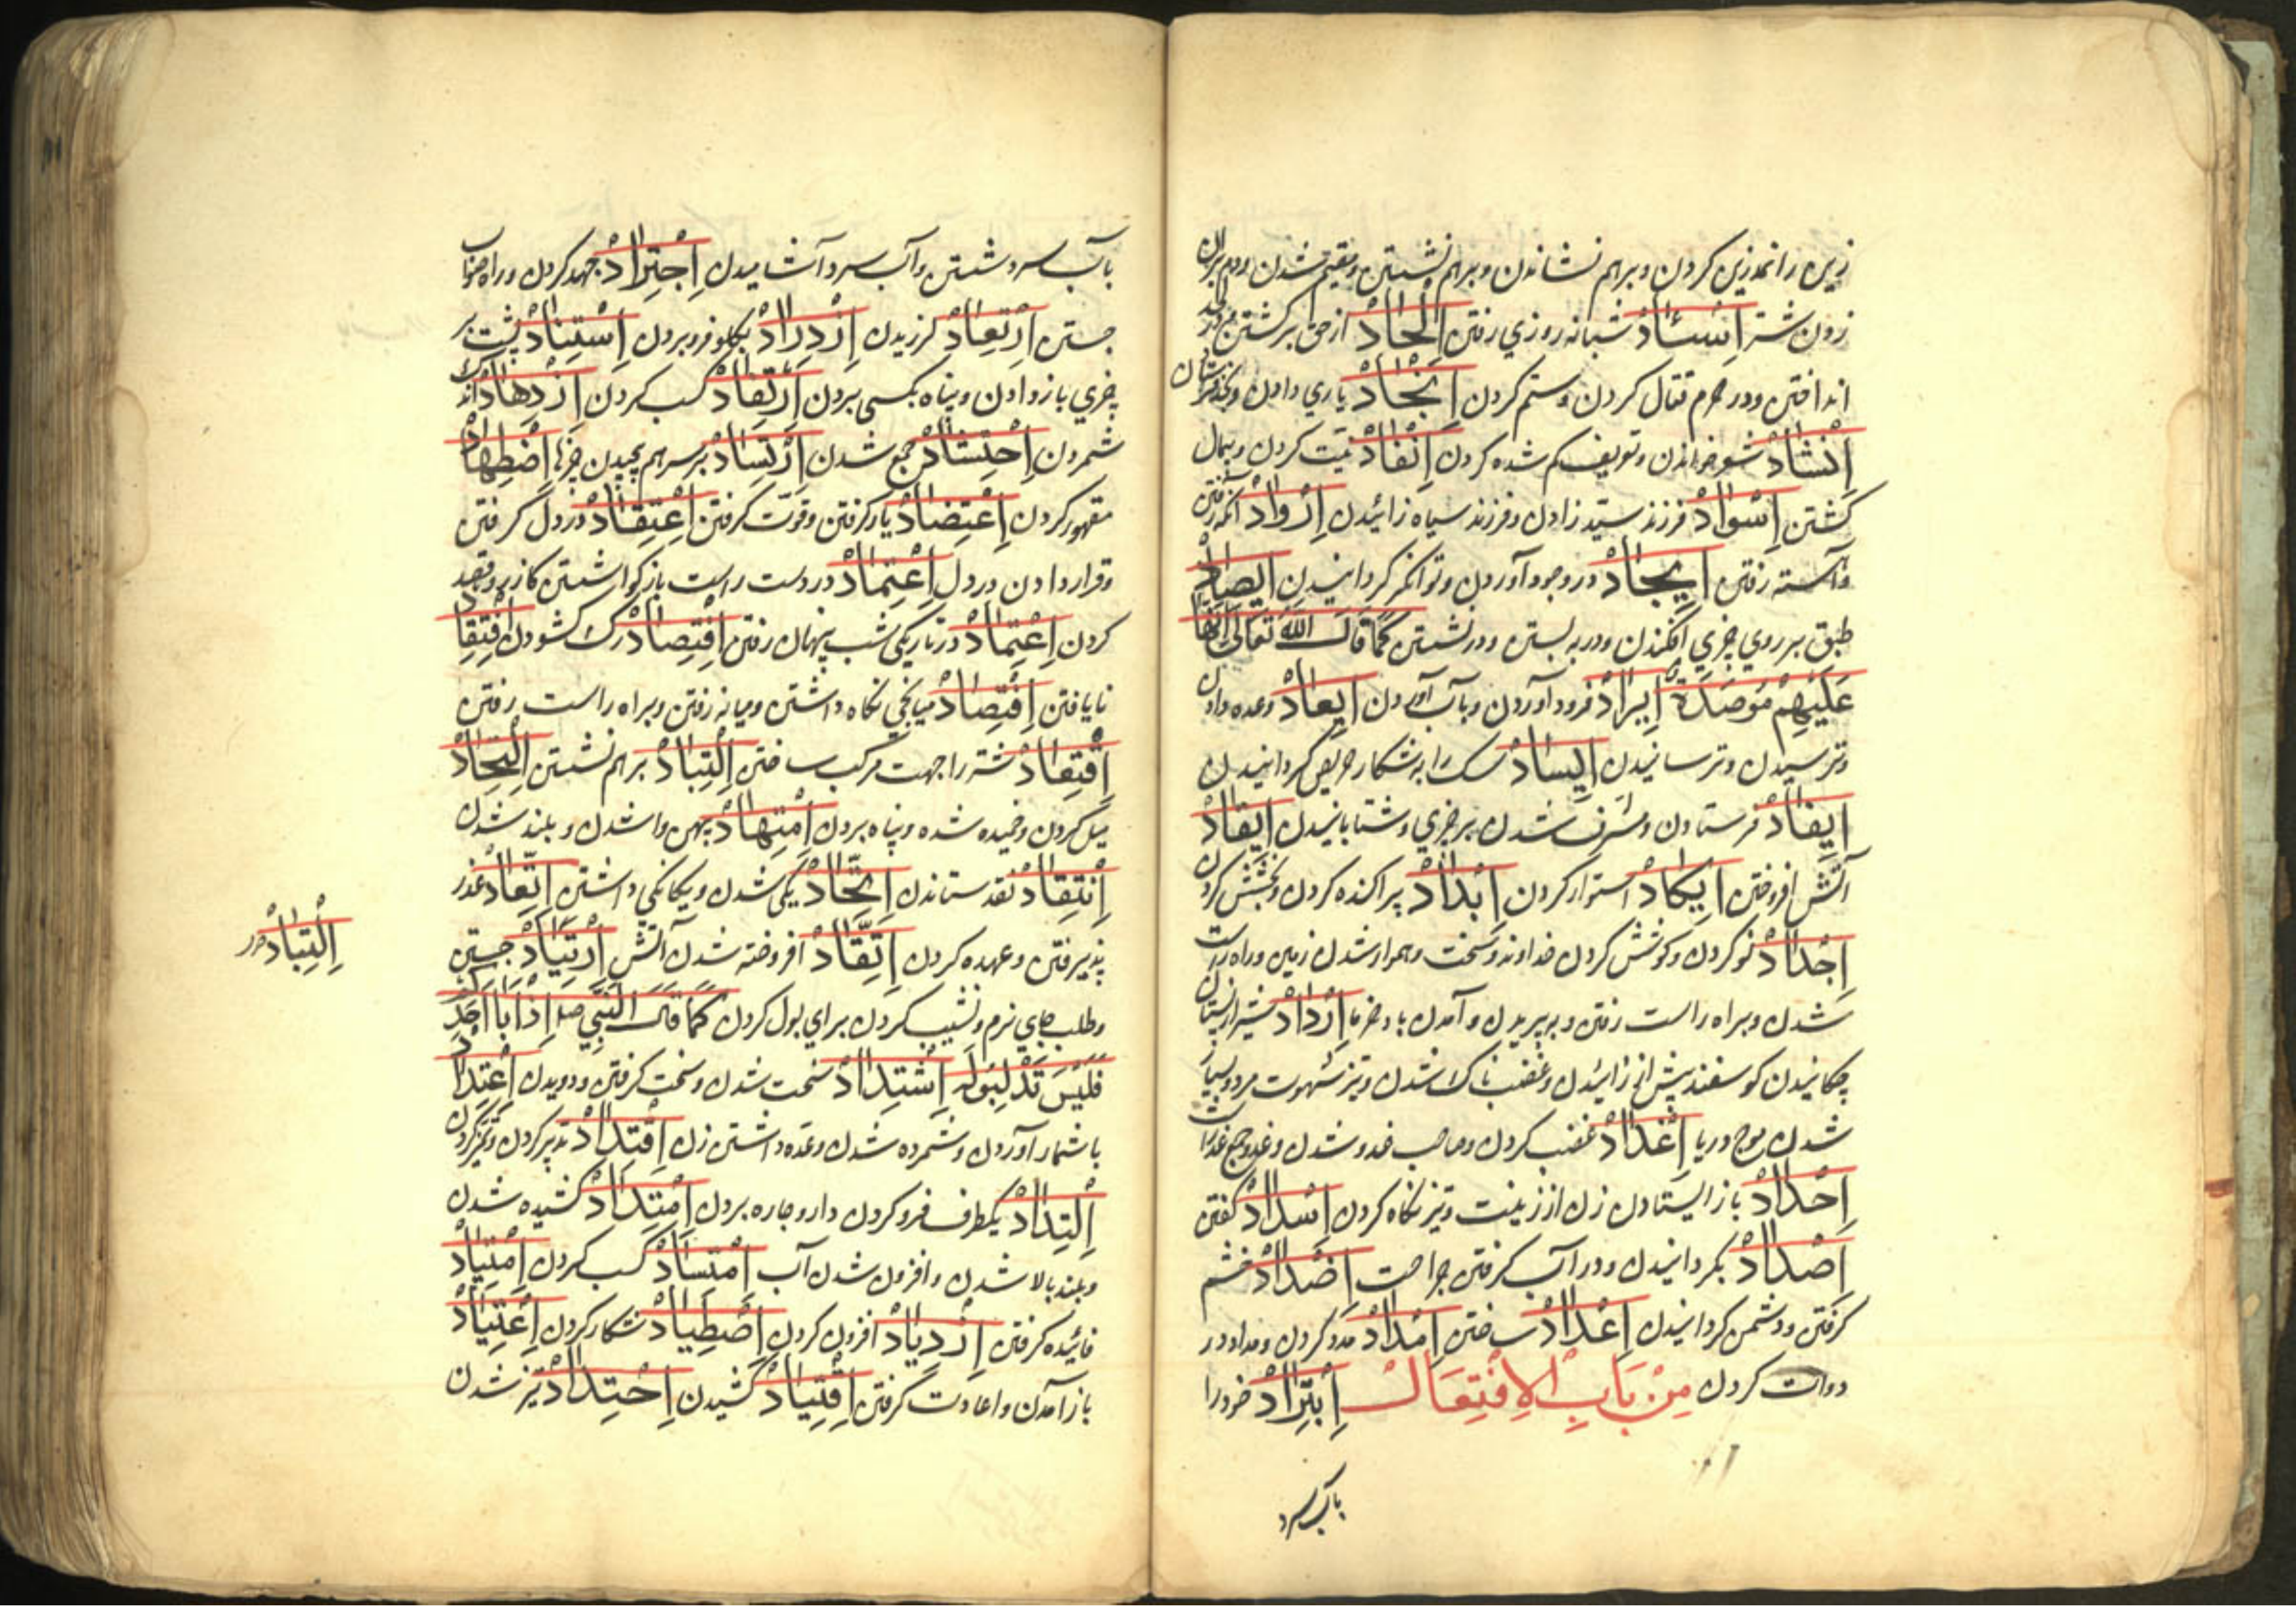 زین را نمدزین کردن و بر هم نشاندن و بر هم نشستن و مقیم شدن و دم بران
زدن شتر اِسْـآدْ شبانه روزي رفتن اِلْحَادْ از حق برگشتن و در لحد
انداختن و در حرم قتال کردن و ستم کردن اِنْجَادْ یاري دادن و بنجد
اِنْشَادْ شعر خواندن و تعریف گم شده کردن اِنْفَادْ نیت کردن و بیمال
گشتن اِسْوَادْ فرزند سیّد زادن و فرزند سیاه زائیدن اِرْوَادْ
و آهسته رفتن اِیجَادْ در وجود آوردن و توانگر گردانیدن اِیصَادْ
طبق بر روي چیزي افگندن و در به بستن و در نشستن کَمَا قَالَ اللّٰهُ تَعَالٰی اِنَّهَا
عَلَیْهِمْ مُوصَدَة اِیْرَادْ فرود آوردن و بآب آوردن اِیعَادْ وعده دادن
و ترسیدن و ترسانیدن اِیسَادْ سک را به شکار حریص گردانیدن
اِیفَادْ فرستادن و مشرف شدن بر چیزي و شتابانیدن اِیقَادْ
آتش افروختن اِیکَادْ استوار کردن اِبْدَادْ پراکنده کردن و بخشش کردن
اِجْدَادْ نو کردن و کوشش کردن خداوند و سخت و هموار شدن زمین و راه راست
شدن و براه راست رفتن و بریدن و آمدن باد خرما اِرْدَادْ شیر از پستان
چکانیدن گوسفند پیش از زائیدن و غضبناک شدن و تیز شهوت مرد و بسیار
شدن موج دریا اِغْدَادْ غضب کردن و صاحب غدو شدن و غدد جمع غده است
اِحْدَادْ باز ایستادن زن از زینت و تیز نگاه کردن اِسْدَادْ گفتن
اِصْدَادْ بگردانیدن و در آب گرفتن جراحت اِضْدَادْ خشم
گرفتن و دشمن گردانیدن اِعْدَادْ ساختن اِمْدَادْ مدد کردن و مداد در
دوات کردن مِنْ بَابِ الْاِفْتِعَالْ اِبْتِرَادْ خود را
بآب سرد
بآب سرد شستن و آب سرد آشامیدن اِجْتِرَادْ جهد کردن و راه صواب
جستن اِرْتِعَادْ لرزیدن اِزْدِرَادْ بگلو فرو بردن اِسْتِنَادْ پشت بر
چیزي باز دادن و پناه بکسی بردن اِرْتِفَادْ کسب کردن اِزْدِهَادْ اندک
شمردن اِحْتِشَادْ جمع شدن اِرْتِسَادْ بر سر هم چیدن چیزها اِضْطِهَادْ
مقهور کردن اِعْتِضَادْ یار گرفتن و قوّت گرفتن اِعْتِقَادْ در دل گرفتن
و قرار دادن در دل اِعْتِمَادْ در دست راست باز گواشتن کار برو قصد
کردن اِعْتِمَادْ در تاریکی شب پنهان رفتن اِفْتِصَادْ رک گشودن اِفْتِقَادْ
نایافتن اِقْتِصَادْ میانجي نگاه داشتن و میانه رفتن و براه راست رفتن
اِقْتِعَادْ شتر را جهت مرکب ساختن اِلْتِبَادْ بر هم نشستن اِلْتِحَادْ
میل کردن و خمیده شده و پناه بردن اِمْتِهَادْ پهن واشدن و بلند شدن
اِنْتِقَادْ نقد ستاندن اِتِّحَادْ یکی شدن و یکانکي داشتن اِتِّعَادْ عذر
پذیرفتن و عهده کردن اِتِّقَادْ افروخته شدن آتش اِرْتِیَادْ جستن
و طلب جاي نرم و نشیب کردن براي بول کردن کَمَا قَالَ النَّبِي صلم اِذَا بَالَ اَحَدُکُمْ
فَلْیَرْتَدْ لِبَوْلِه اِشْتِدَادْ سخت شدن و سخت گرفتن و دویدن اِعْتِدَادْ
باشمار آوردن و شمرده شدن و عده داشتن زن اِقْتِدَادْ تدبیر کردن و تمیز کردن
اِلْتِدَادْ یکطرف فرو کردن دارو چاره بردن اِمْتِدَادْ کشیده شدن
و بلند بالا شدن و افزون شدن آب اِمْتِسَادْ کسب کردن اِمْتِیَادْ
فائیده گرفتن اِزْدِیَادْ افزون کردن اِصْطِیَادْ شکار کردن اِعْتِیَادْ
باز آمدن و اعادت گرفتن اِقْتِیَادْ کشیدن اِحْتِدَادْ تیز شدن
اِلْتِبَادْ در